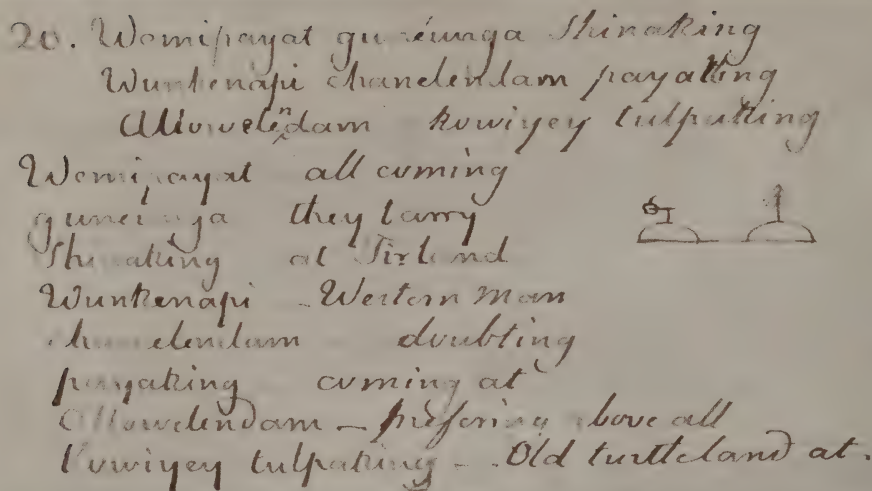 20. Womipayat guneunga Shinaking
Wunkenapi chanelendam payaking
Allowelendam kowiyey tulpaking
Womipayat all coming
guneunga they tarry
Shinaking at Firland
Wunkenapi - Western man
chanelendam doubting
payaking coming at
Allowelendam - prefering above all
kowiyey tulpaking - Old turtleland at.